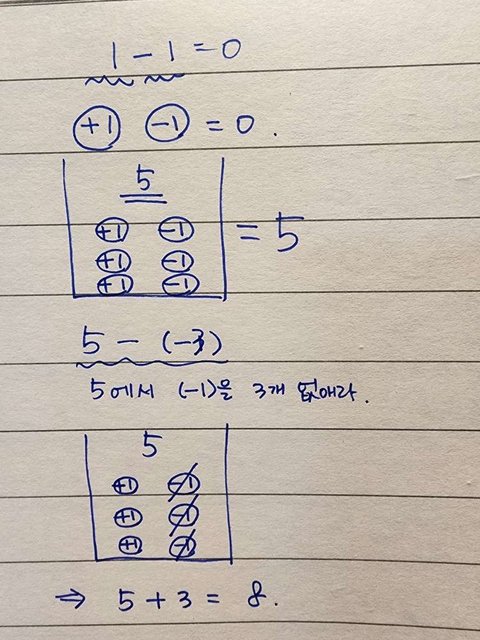 1 - 1 = 0
+1 -1 = 0.
5
+1 -1
+1 -1 = 5
+1 -1
5 - (-3)
5에서 (-1)을 3개 없애라.
5
+1 -1
+1 -1
+1 -1
⇒ 5 + 3 = 8.